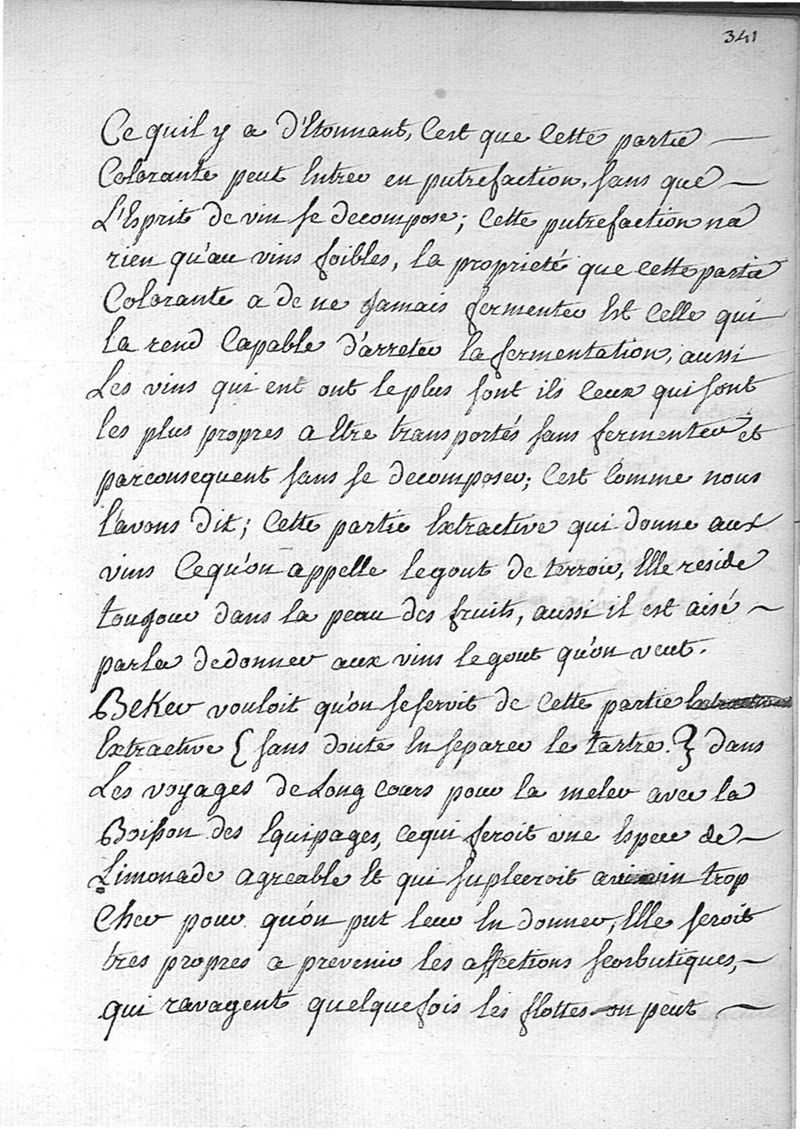 341
Ce quil y a d'Etonnant, C'est que Cette partie
Colorante peut Entrer en putrefaction, sans que
L'Esprit de vin se decompose; Cette putrefaction na
rien qu'au vins foibles, la proprieté que cette partie
Colorante a de ne jamais fermenter Est Celle qui
la rend Capable d'arreter la fermentation, aussi
Les vins qui ent ont le plus sont ils Ceux qui sont
les plus propres a Etre transportés sans fermenter et
parconsequent sans se decomposer; C'est Comme nous
l'avons dit; Cette partie Extractive qui donne aux
vins Cequ'on appelle legout de terroir, Elle reside
toujour dans la peau des fruits, aussi il est aisé
parla dedonner aux vins legout qu'on veut.
BeKer vouloit qu'on seservit de Cette partie
Extractive { sans doute En separer le tartre. } dans
Les voyages deLong cours pour la meler avec la
Boisson des Equipages, cequi feroit une Espece de
Limonade agreable Et qui supleeroit au vin trop
Cher pour qu'on put leur En donner, Elle seroit
tres propres a prevenir les affections scorbutiques,
qui ravagent quelquefois les flottes on peut